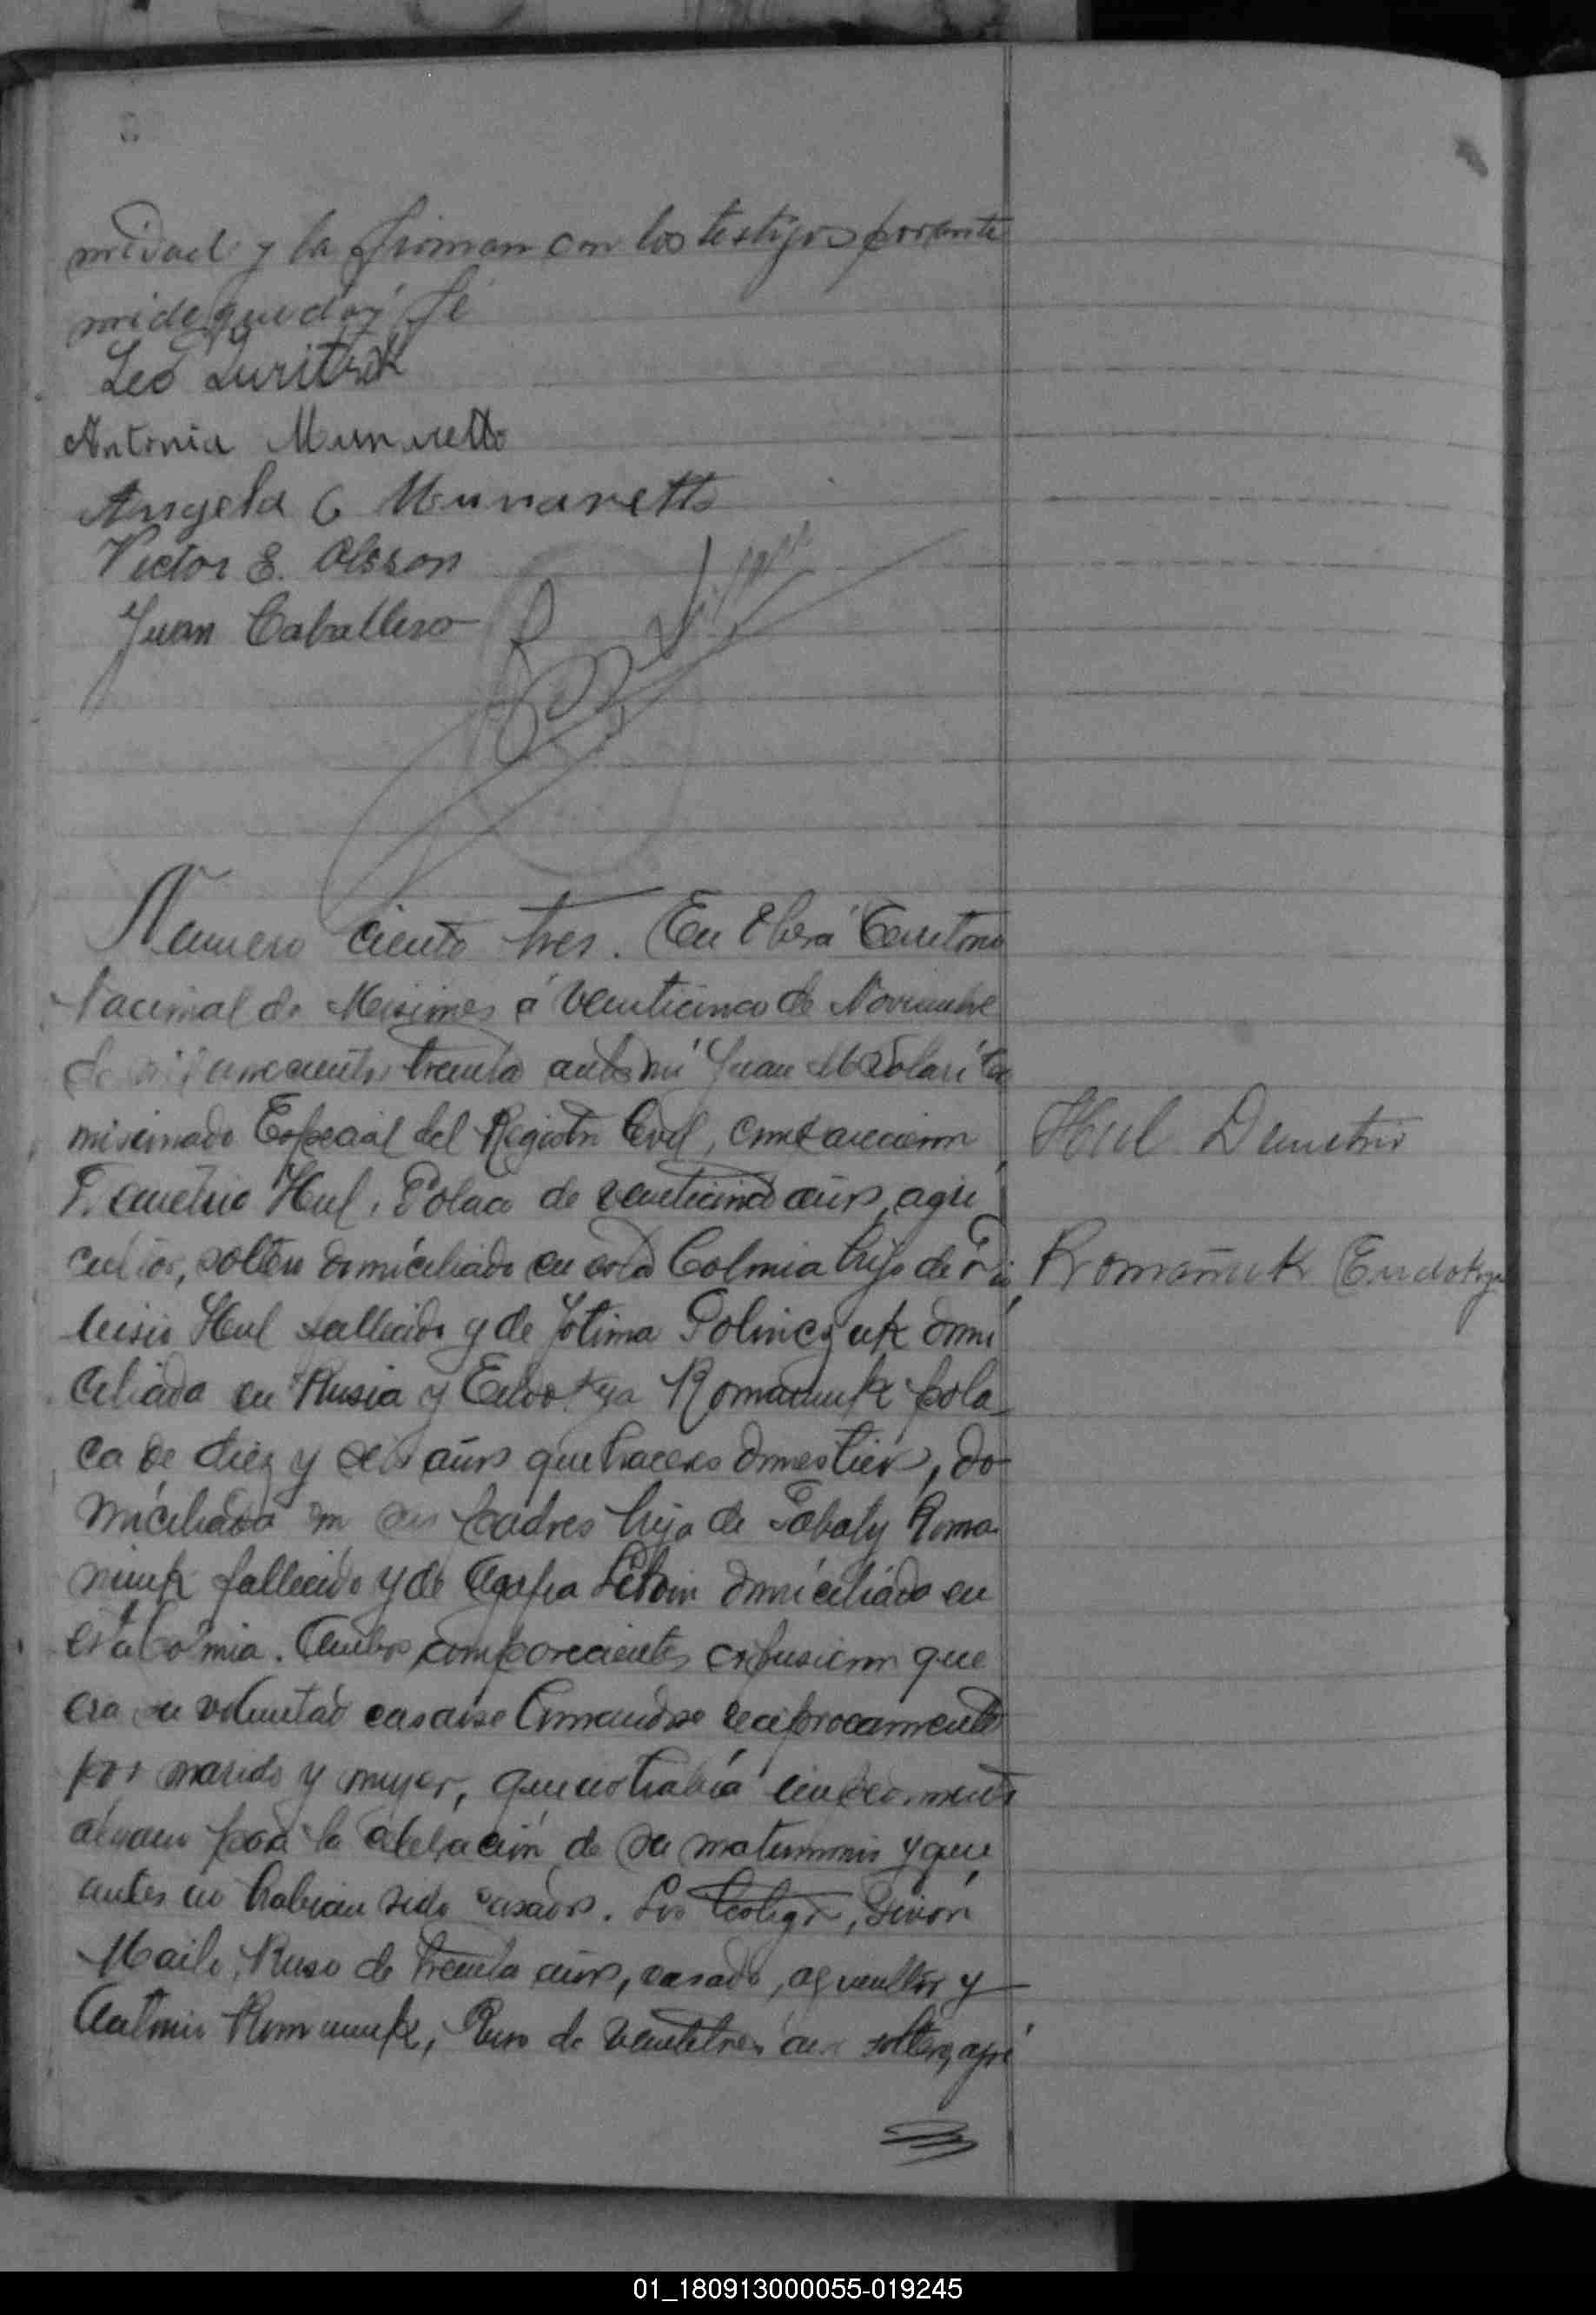 midad y la firman con los testigos por ante
mi de que doy fé
Leo
Antonia Munaretto
Angela C Munaretto
Victor E. Olsson
Juan Caballero
Numero ciento tres. En Oberá Territorio
Nacional de Misiones á veinticinco de Noviembre
de mil novecientos treinta ante mi Juan
misionado Especial del Registro Civil, comparecieron
Demetrio Hul, Polaco de veinticinco años, agri
cultor, soltero domiciliado en esta Colonia hijo de
Hul fallecido y de Jotima Polinczuk domi
ciliada en Rusia y Eudokya Romañuk pola-
ca de diez y seis años quehaceres domesticos, do
miciliada en sus padres hija de Roma
niuk fallecido y de Agafia domiciliada en
esta Colonia. Ambos comparecientes expusieron que
era su voluntad casarse tomandose reciprocamente
por marido y mujer, que no habia impedimento
alguno para la celebración de su matrimonio y que
antes no habian sido casados. Los testigos, Simón
Maile, Ruso de treinta años, casado, agricultor y
Antonio Romaniuk, Ruso de veintitres años soltero, agri
Hul Demetrio
Romañuk Eudokya
01_180913000055-019245